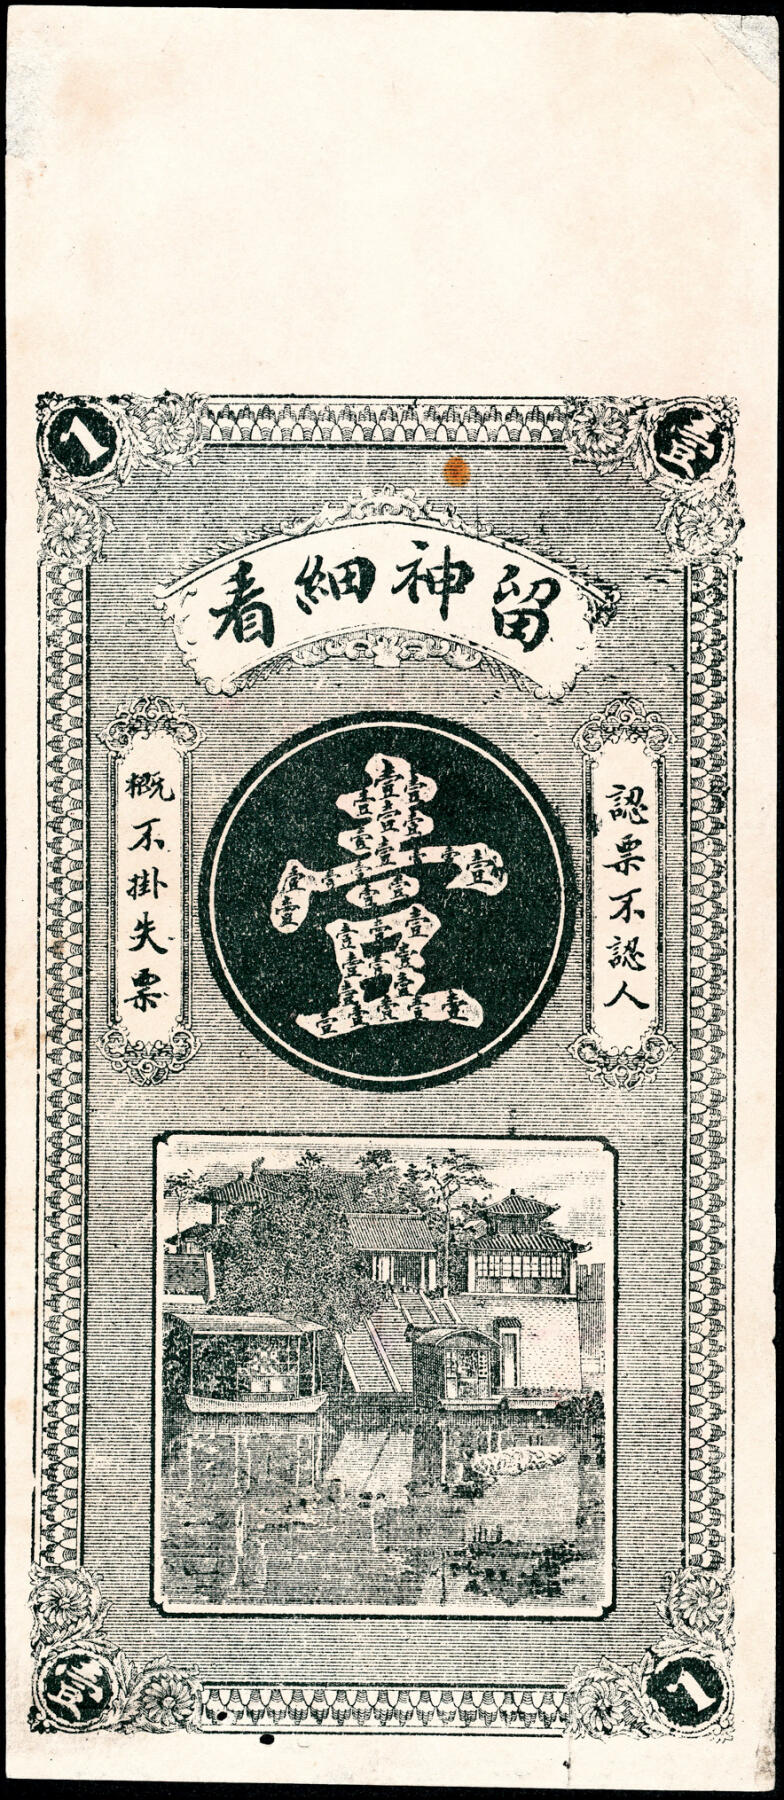 1
壹
留神細看
認票不認人
壹
概不掛失票
壹
1